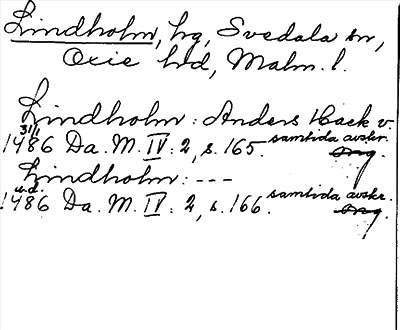 Lindholm, hg, Svedala sn,
Oxie hd, Malm. l.
Lindholm: Anders Hack v.
31/1 1486 Da. M. IV: 2, s. 165. samtida avskr. Org.
Lindholm: ---
u.d. 1486 Da. M. IV: 2, s. 166. samtida avskr. Org.